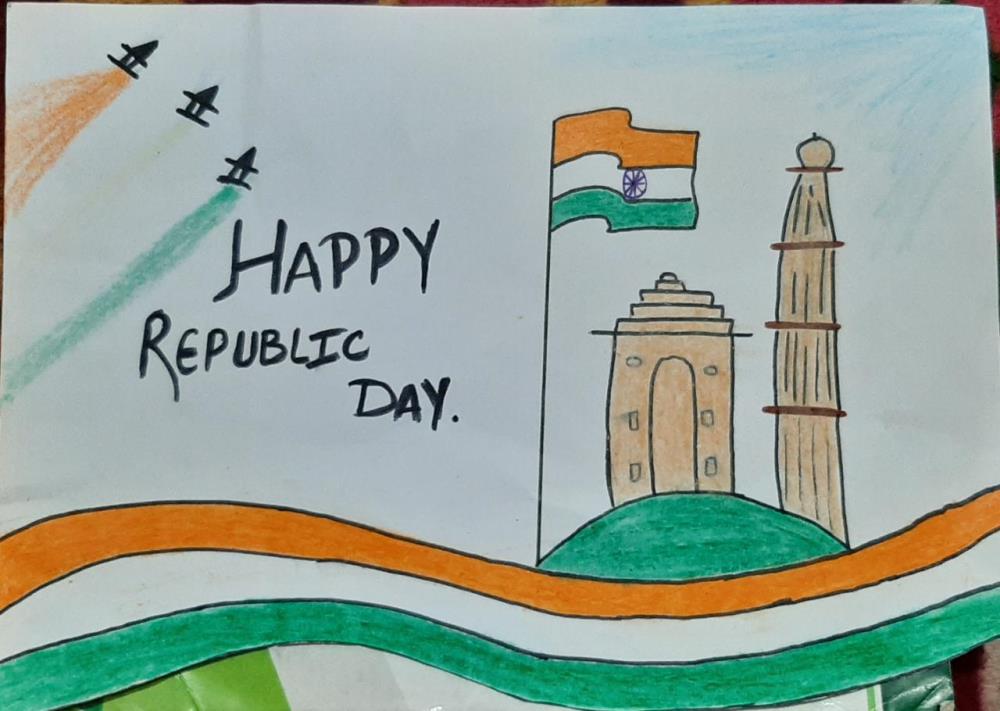 HAPPY
REPUBLIC
DAY.